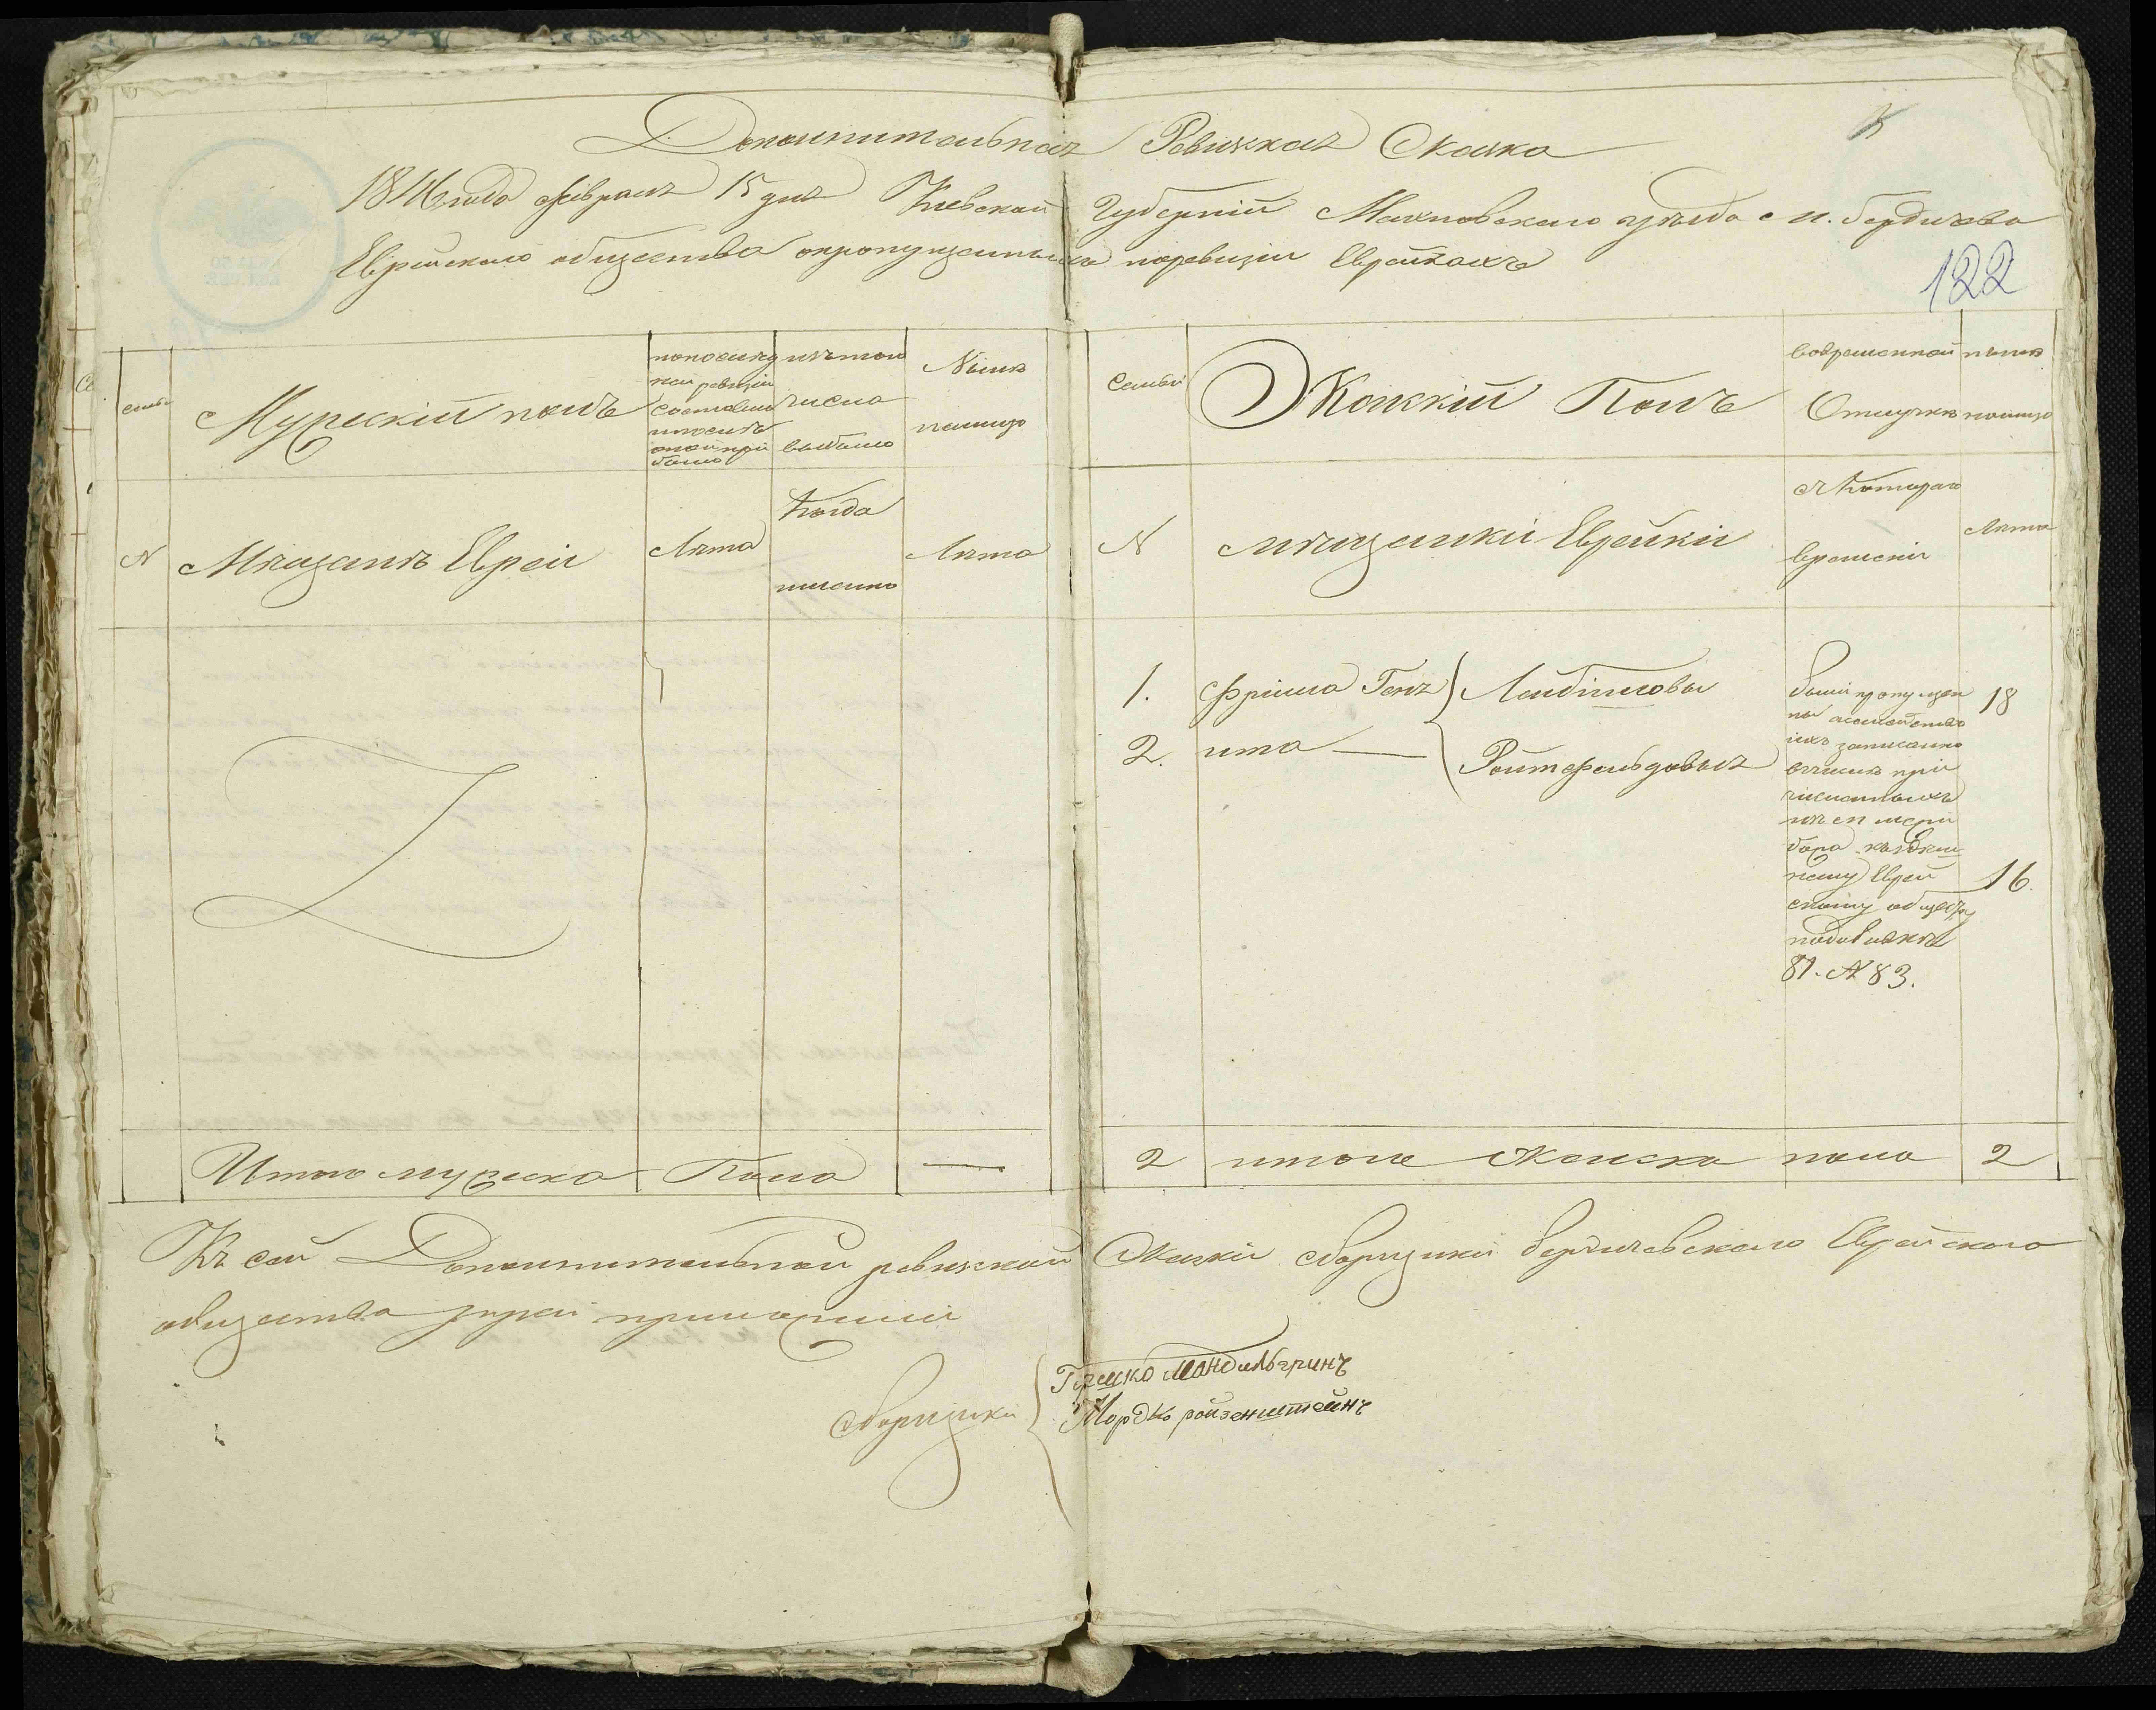 Дополнительная Ревизкая Сказка
1846 года февраля 15 дня Киевской Губерній Махновского уезда м. бердичева
Еврейского общества опропущенныхъ поревизіи Еврейкахъ
122
семьи
Мужескій полъ
попослед
ней ревизіи
состояло
ипосле
оной при
было
изътого
числа
выбыло
Ныне
налицо
Семьи
Женскій Полъ
вовременной
Отлучке
ныне
налицо
N
Мещане Евреи
Лета
Когда
именно
Лета
N
мещанки Еврейки
скотораго
времени
Лета
1. Фрима Геня Лейбишовы
2. ита — Ройтфельдовыя
были пропущен
ны асемейство
ихъ записано
вчисле при
численныхъ
изъ м
кздеш
нему Еврей
скому общеву
подъ
81. N 83.
18
16.
Итого мужеска Пола —
2 итого женска пола 2
Къ сей Дополнительной ревизской Сказки сборщики бердичевского Еврейского
общества руки приложили
сборщики
Гершко мандильгринъ
Мордко ройзенштейнъ